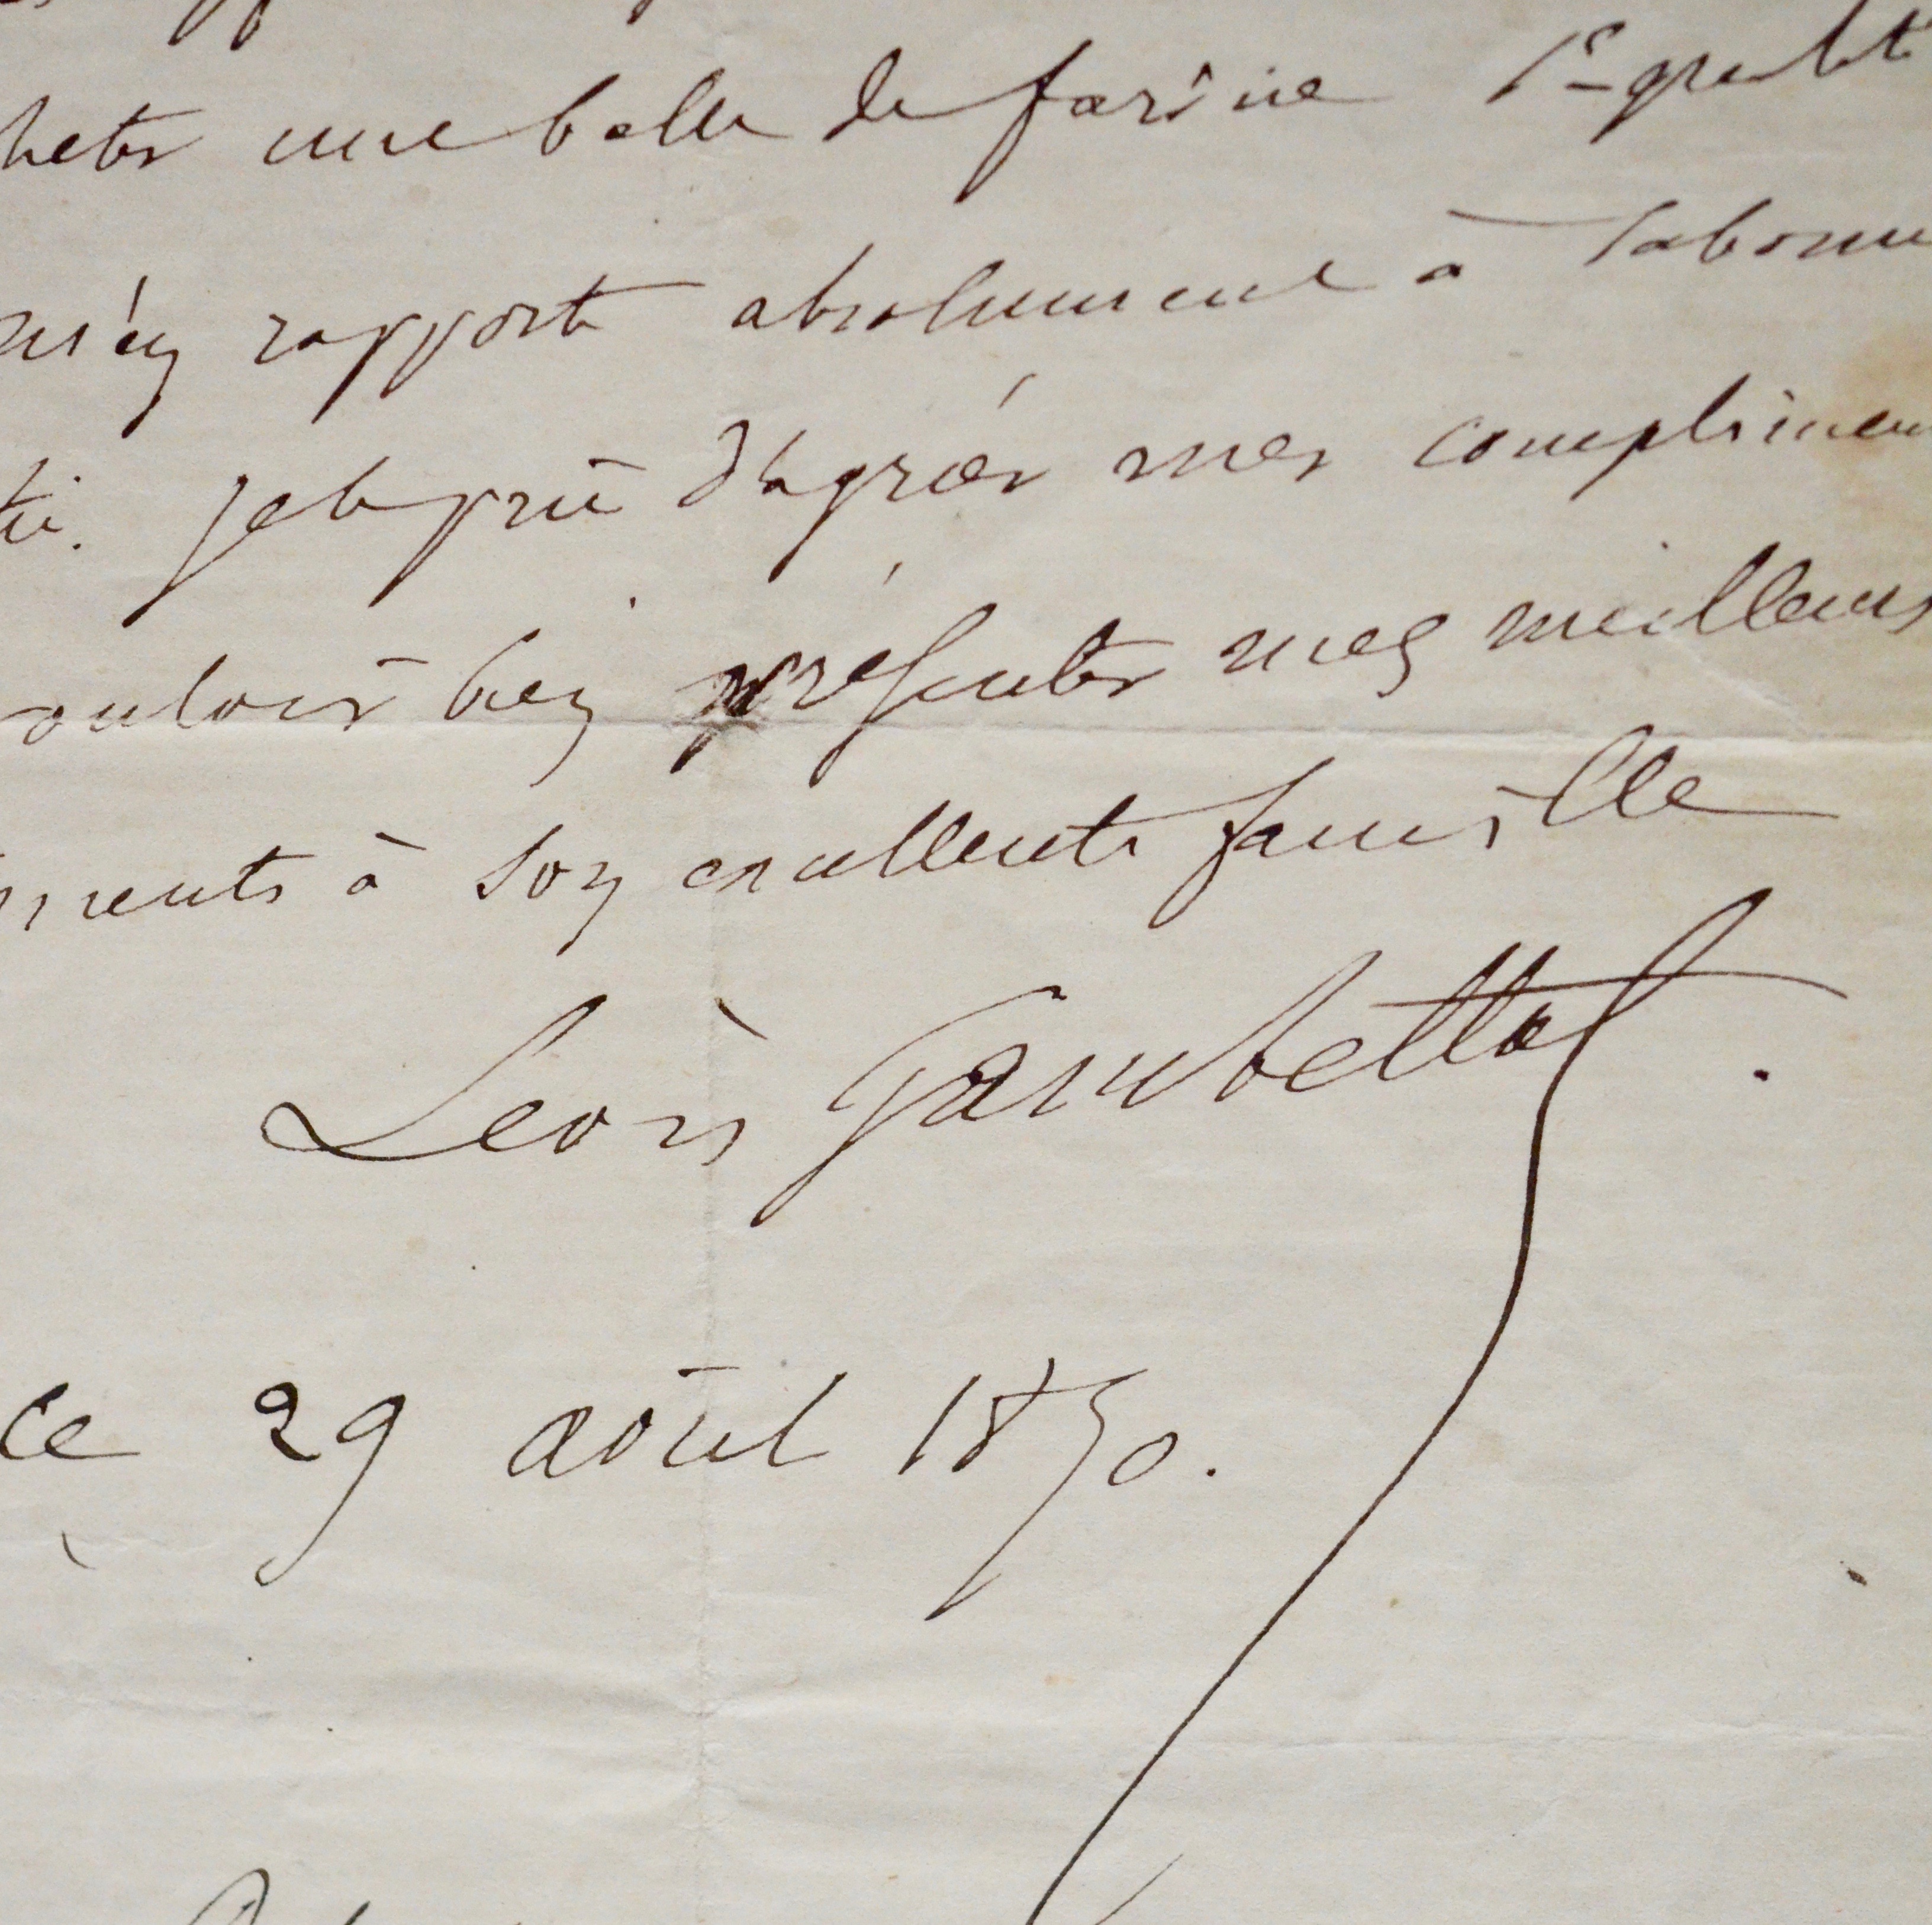 heter une balle de farine 1e qualit
m'en rapporte absolument à sa bonne
tié. Je le prie d'agréer mes complimen
ouloir bien présenter mes meilleurs
ments à son excellente famille
Léon Gambetta.
ce 29 août 1870.